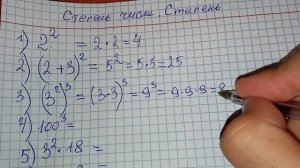 Степень числа. Степень
1) 2² = 2·2=4
2) (2+3)² = 5² = 5·5=25
3) (3²)³ = (3·3)³ = 9³ = 9·9·9=8
4) 100³ =
5) 3²·18 =